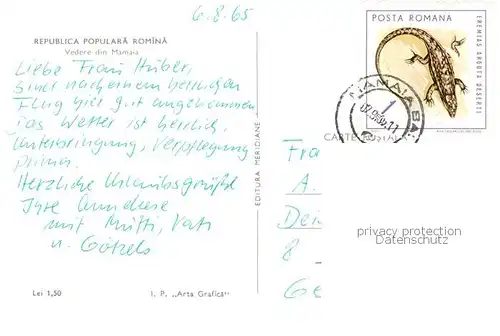 6.8.65
REPUBLICA POPULARĂ ROMÎNĂ
Vedere din Mamaia
Liebe Frau Huber,
sind nach einem herrlichen
Flug hier gut angekommen,
das Wetter ist herrlich,
Unterbringung, Verpflegung
prima.
Herzliche Urlaubsgrüße
Ihre
mit Mutti, Vati
u.
Lei 1,50
I. P. „Arta Grafică"
EDITURA MERIDIANE
POSTA ROMANA
EREMIAS ARGUTA DESERTI
MAMAIA BA
1
CARTE POȘTALĂ
Fra
A.
8
privacy protection
Datenschutz